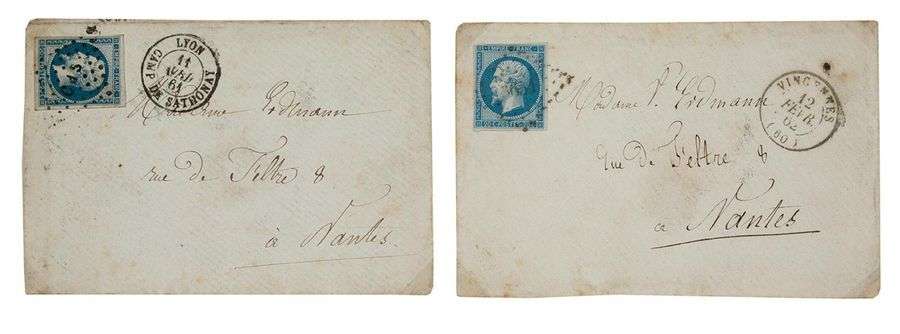 LYON
11
61
CAMP DE SATHONAY
Madame Erdmann
rue de Feltre 8
à Nantes
EMPIRE FRANC
20 C POSTES 20 C
VINCENNES
12
FEVR.
62
(60)
Madame V. Erdmann
rue de Feltre 8
a Nantes